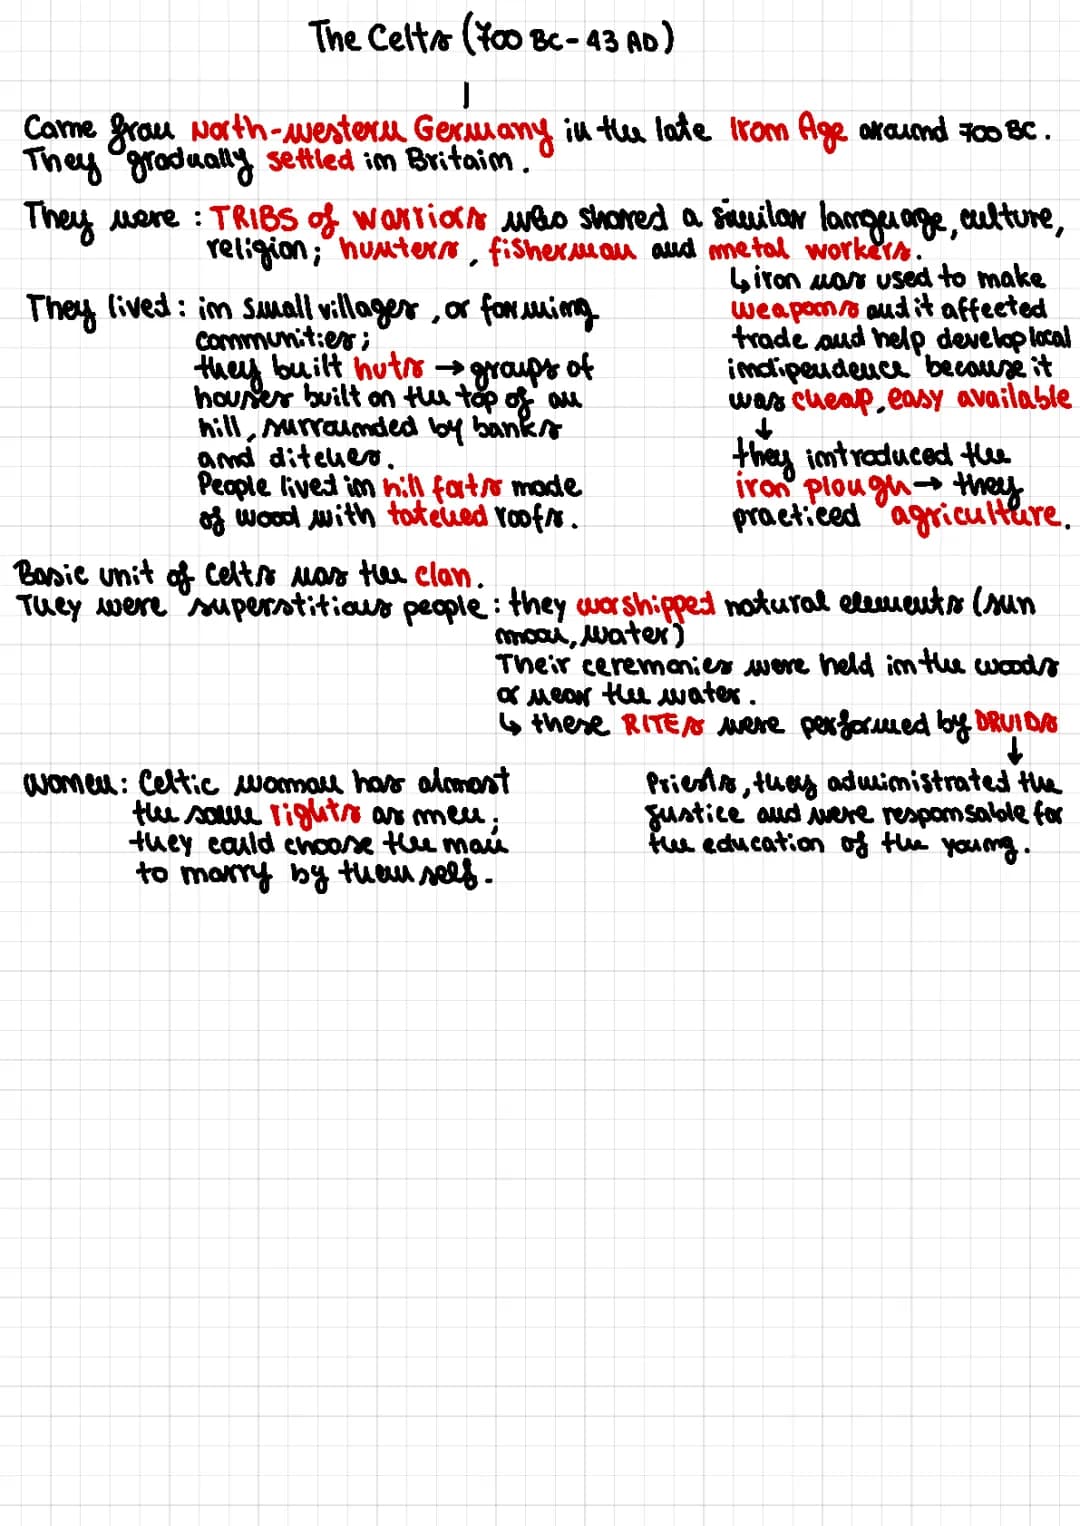 The Celts (700 BC - 43 AD)
Came from North-western Germany in the late Iron Age around 700 BC.
They gradually settled in Britain.
They were : TRIBS of warriors who shared a similar language, culture,
religion; hunters, fisherman and metal workers.
↳ iron was used to make
weapons and it affected
trade and help develop local
indipendence because it
was cheap, easy available
↓
they introduced the
iron plough → they
practiced agriculture.
They lived : in small villages, or farming
communities;
they built huts → groups of
houses built on the top of an
hill, surrounded by banks
and ditches.
People lived in hill forts made
of wood with tatched roofs.
Basic unit of Celts was the clan.
They were superstitious people : they worshipped natural elements (sun
moon, water)
Their ceremonies were held in the woods
or near the water.
↳ these RITES were performed by DRUIDS
↓
Priests, they administrated the
justice and were responsable for
the education of the young.
Women : Celtic woman has almost
the same rights as men;
they could choose the man
to marry by themself.